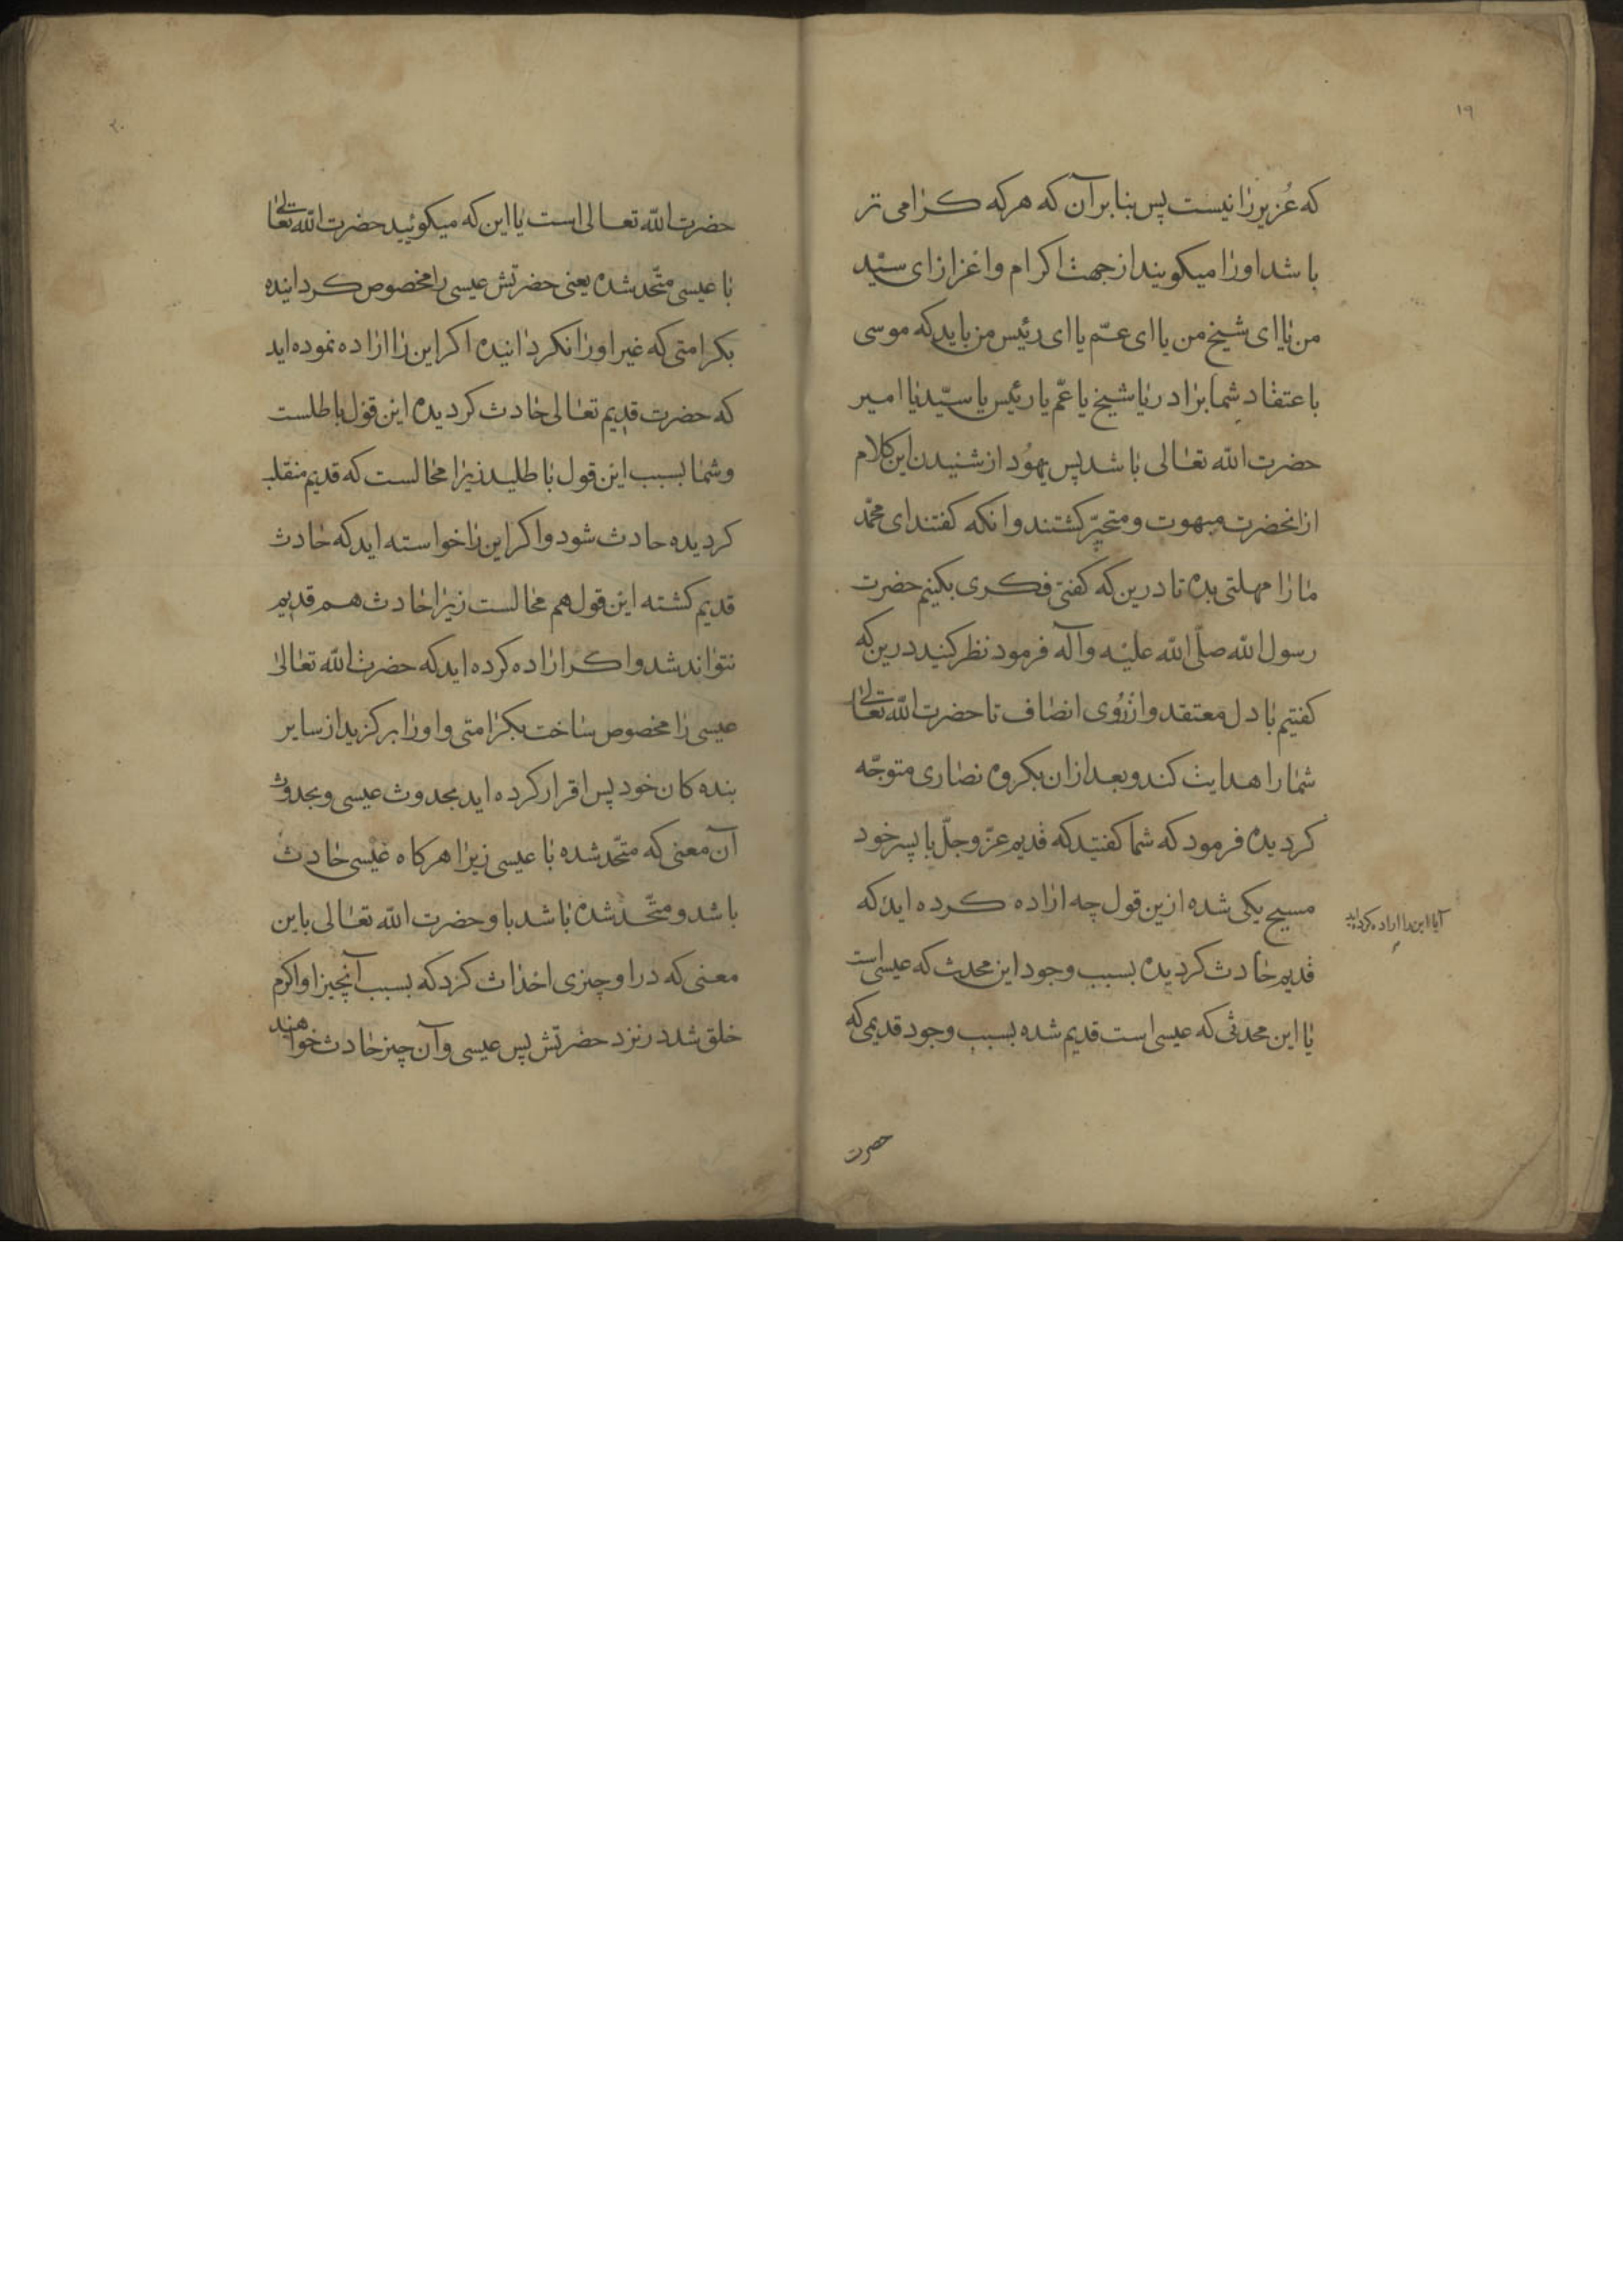 ۱۹
که عُزیر را نیست پس بنابر آن که هر که کرامی تر
باشد او را میکویند از جهت اکرام و اعزاز ای سیّد
من یا ای شیخ من یا ای عمّ یا ای رئیس من باید که موسی
باعتقاد شما برادر یا شیخ یا عمّ یا رئیس یا سیّد یا امیر
حضرت الله تعالی باشد پس یهُود از شنیدن این کلام
از انحضرت مبهوت و متحیّر کشتند وانکه کفتند ای محمّد
ما را مهلتی بده تا درین که کفتی فکری بکنیم حضرت
رسول الله صلّی الله علیه وآله فرمود نظر کنید درین که
کفتیم با دل معتقد و از رُوی انصاف تا حضرت الله تعالی
شما را هدایت کند وبعد ازان بکروه نصاری متوجّه
کردیده فرمود که شما کفتید که قدیم عزّ وجلّ با پسر خود
مسیح یکی شده ازین قول چه اراده کرده اید که
آیا این را اراده کرده اید
قدیم حادث کردیده بسبب وجود این محدث که عیسی است
یا این محدثی که عیسی است قدیم شده بسبب وجود قدیمی که
حضرت
۲۰
حضرت الله تعالی است یا این که میکوئید حضرت الله تعالی
با عیسی متّحد شده یعنی حضرتش عیسی را مخصوص کردانیده
بکرامتی که غیر او را نکردانیده اکر این را اراده نموده اید
که حضرت قدیم تعالی حادث کردیده این قول باطلست
وشما بسبب این قول باطلید زیرا محالست که قدیم منقلب
کردیده حادث شود واکر این را خواسته اید که حادث
قدیم کشته این قول هم محالست زیرا حادث هم قدیم
نتواند شد واکر اراده کرده اید که حضرت الله تعالی
عیسی را مخصوص ساخت بکرامتی و او را برکزید از سایر
بنده کان خود پس اقرار کرده اید بحدوث عیسی وبحدوث
آن معنی که متّحد شده با عیسی زیرا هرکاه عیسی حادث
باشد و متّحد شده باشد با و حضرت الله تعالی باین
معنی که در او چیزی احداث کرد که بسبب آنچیز او اکرم
خلق شد در نزد حضرتش پس عیسی وآن چیز حادث خواهند